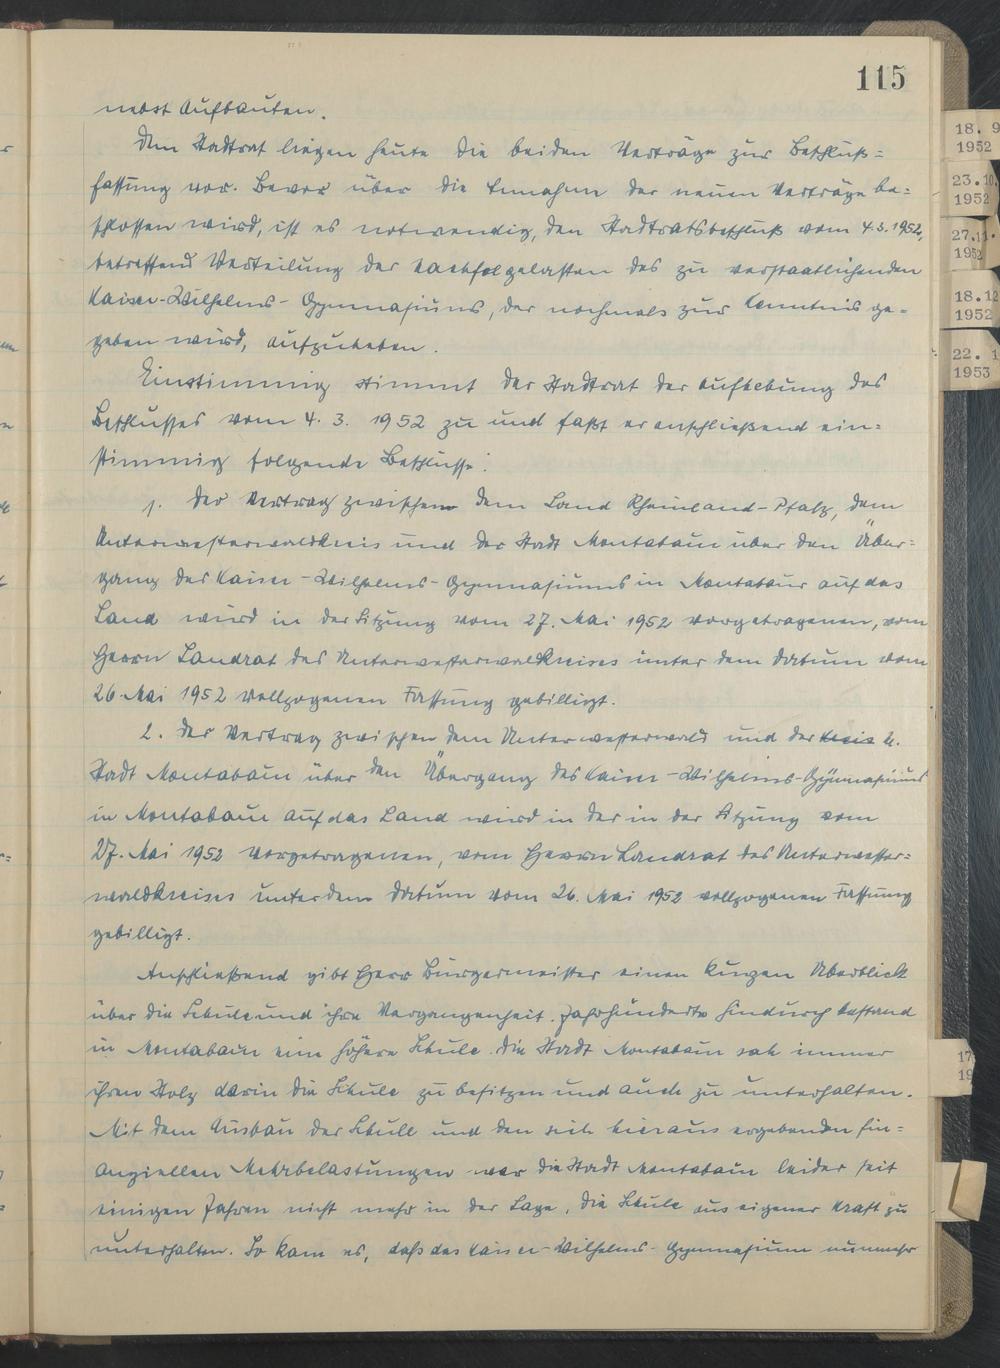 115
nebst Aufbauten.
Dem Stadtrat liegen heute die beiden Verträge zur Beschluß=
fassung vor. Bevor über die Annahme der neuen Verträge be=
schlossen wird, ist es notwendig, den Stadtratsbeschluß vom 4.3.1952,
betreffend Verteilung der des zu verstaatlichenden
Kaiser-Wilhelms-Gymnasiums, der nochmals zur Kenntnis ge=
geben wird, aufzuheben.
Einstimmig stimmt der Stadtrat der Aufhebung des
Beschlusses vom 4. 3. 1952 zu und faßt er anschließend ein=
stimmig folgende Beschlüsse:
1. Der Vertrag zwischen dem Land Rheinland-Pfalz, dem
Unterwesterwaldkreis und der Stadt Montabaur über den Über=
gang des Kaiser-Wilhelms-Gymnasiums in Montabaur auf das
Land wird in der Sitzung vom 27. Mai 1952 vorgetragenen, vom
Herrn Landrat des Unterwesterwaldkreises unter dem Datum vom
26. Mai 1952 vollzogenen Fassung gebilligt.
2. Der Vertrag zwischen dem Unterwesterwald und der Kreis u.
Stadt Montabaur über den Übergang des Kaiser-Wilhelms-Gymnasiums
in Montabaur auf das Land wird in der in der Sitzung vom
27. Mai 1952 vorgetragenen, vom Herrn Landrat des Unterwester=
waldkreises unter dem Datum vom 26. Mai 1952 vollzogenen Fassung
gebilligt.
Anschließend gibt Herr Bürgermeister einen kurzen Überblick
über die Schule und ihre Vergangenheit. Jahrhunderte hindurch bestand
in Montabaur eine höhere Schule. Die Stadt Montabaur sah immer
ihren Stolz darin die Schule zu besitzen und auch zu unterhalten.
Mit dem Ausbau der Schule und den sich hieraus ergebenden fin=
anziellen Mehrbelastungen war die Stadt Montabaur leider seit
einigen Jahren nicht mehr in der Lage, die Schule aus eigener Kraft zu
unterhalten. So kam es, daß das Kaiser-Wilhelms-Gymnasium nunmehr
18. 9
1952
23.10.
1952
27.11.
1952
18.12
1952
22. 1
1953
17
19